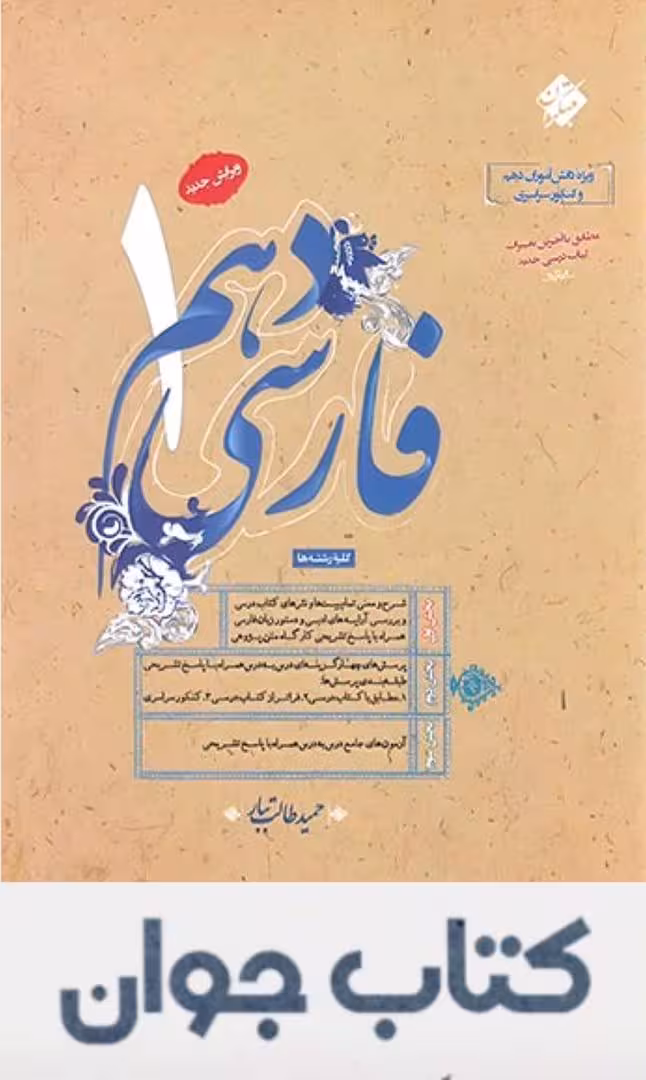 مبتکران
ویرایش جدید
ویژه دانش‌آموزان دهم
و کنکور سراسری
مطابق با آخرین تغییرات
کتاب درسی جدید
فارسی دهم ۱
کلیه رشته‌ها
بخش اول
شرح و معنی تمام بیت‌ها و نثرهای کتاب درسی
و بررسی آرایه‌های ادبی و دستور زبان فارسی
همراه با پاسخ تشریحی کارگاه متن پژوهی
بخش دوم
پرسش‌های چهارگزینه‌ای درس به درس همراه با پاسخ تشریحی
طبقه‌بندی پرسش‌ها:
۱. مطابق با کتاب درسی ۲. فراتر از کتاب درسی ۳. کنکور سراسری
بخش سوم
آزمون‌های جامع درس به درس همراه با پاسخ تشریحی
حمید طالب تبار
کتاب جوان